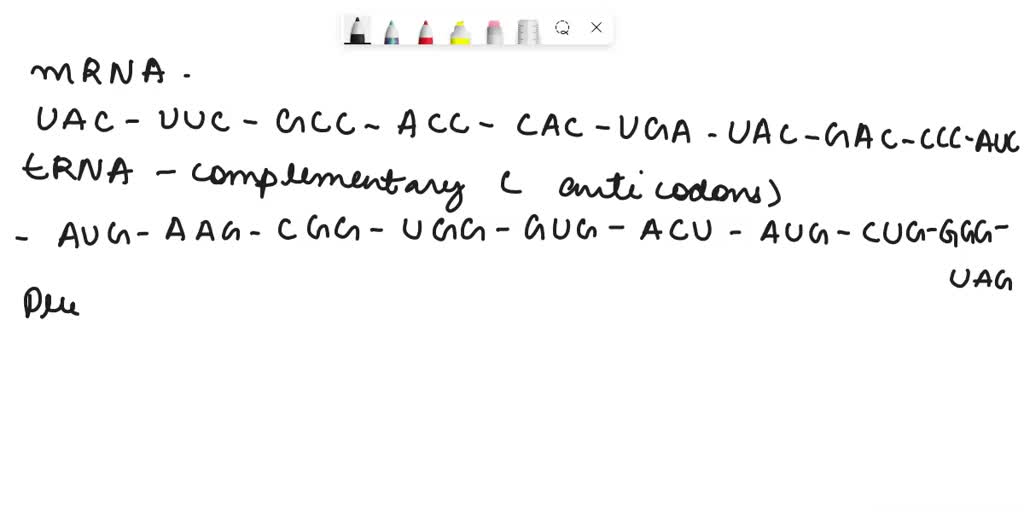 mRNA.
UAC - UUC - GCC - ACC - CAC - UGA - UAC - GAC - CCC - AUC
tRNA - complementary ( anti codons)
- AUG - AAG - CGG - UGG - GUG - ACU - AUG - CUG - GGG -
UAG